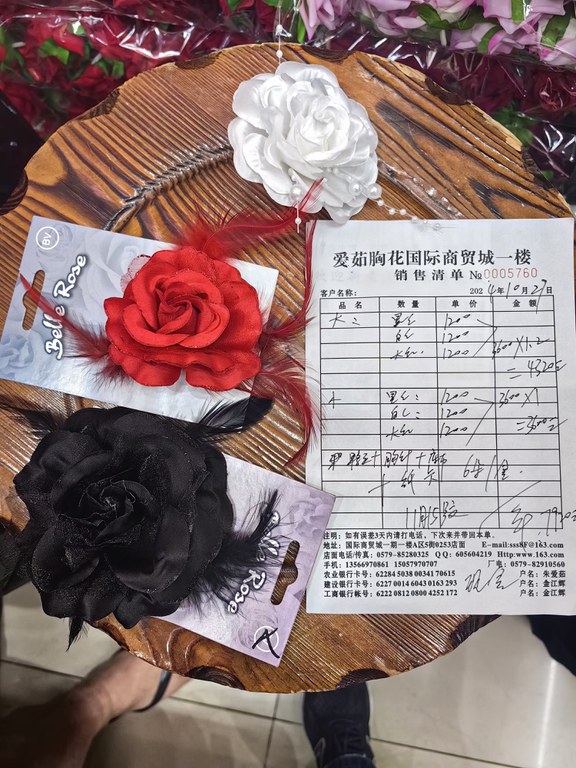 BV
Belle Rose
Belle Rose
爱茹胸花国际商贸城一楼
销售清单 № 0005760
客户名称： 2024年10月27日
品名 数量 单价 金额
大 黑色 1200
白色 1200 3600×1.2
大红 1200
=4320元
小 黑色 1200 3600×1
白色 1200
大红 1200 =3600元
+胸针+
+纸卡
11月15
7920
注：如有误差3天内请打电话，下次来并带回本单。
地址：国际商贸城一期一楼A区5街0253店面 E-mail:sss8F@163.com
店面电话/传真：0579-85280325 QQ：605604219 Http:www.163.com
手机：13566970861 15057970707 厂电：0579-82910560
农业银行卡号：62284 5038 00341 70615 户名：朱爱茹
建设银行卡号：6227 0014 6043 0163 293 户名：金江辉
工商银行帐号：6222 0812 0800 4252 172 户名：金江辉